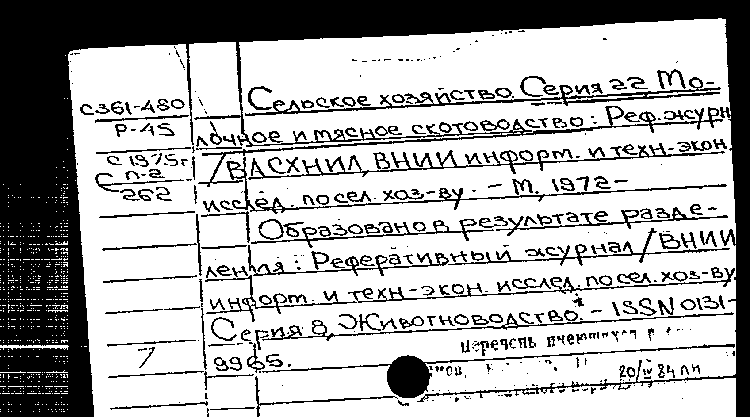 С361-480
Р-45
С 1975г
С п-2
262
Сельское хозяйство. Серия 22, Мо-
лочное и мясное скотоводство: Реф. журн
/ВАСХНИЛ, ВНИИ информ. и техн-экон.
исслед. по сел. хоз-ву. - М, 1972-
Образовано в результате разде-
ления: Реферативный журнал/ВНИИ
информ. и техн-экон. исслед. по сел. хоз-ву
Серия 8, Животноводство. - ISSN 0131-
7
9965.
Перечень имеющихся в
20/IV 84 лн